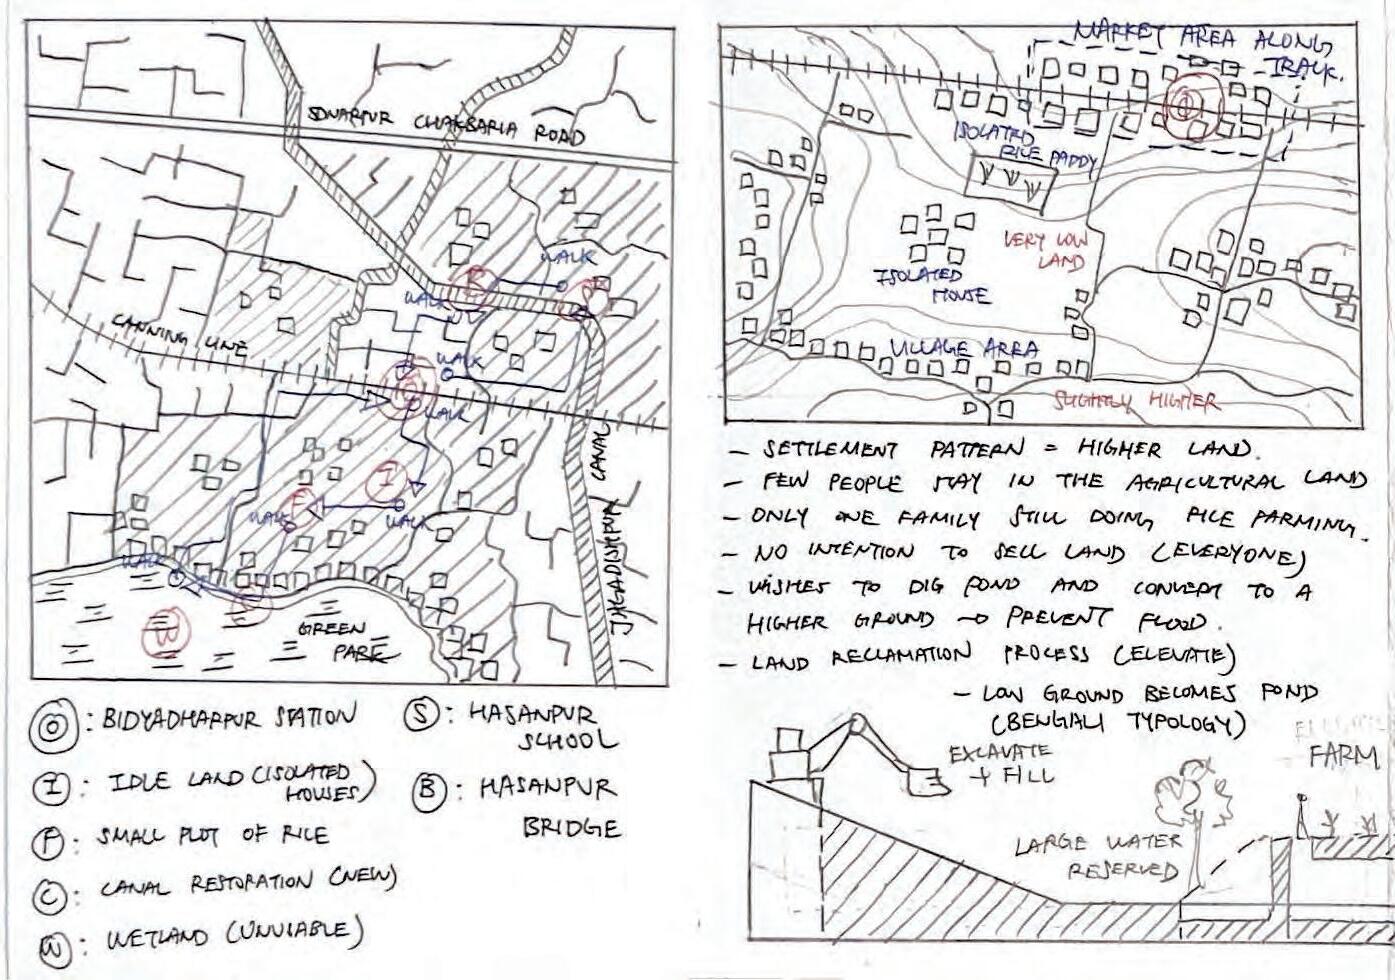 SONARPUR CHAKBARIA ROAD
WALK
WALK
CANNING LINE
WALK
WALK
I
WALK
WALK
WALK
JHEADISHPUR CANAL
B
GREEN
PARK
O : BIDYADHARPUR STATION
I : IDLE LAND (ISOLATED
HOUSES)
F : SMALL PLOT OF RICE
C : CANAL RESTORATION (NEW)
W : WETLAND (UNVIABLE)
S : HASANPUR
SCHOOL
B : HASANPUR
BRIDGE
MARKET AREA ALONG
TRACK.
ISOLATED
RICE PADDY
VERY LOW
LAND
ISOLATED
HOUSE
VILLAGE AREA
SLIGHTLY HIGHER
- SETTLEMENT PATTERN = HIGHER LAND.
- FEW PEOPLE STAY IN THE AGRICULTURAL LAND
- ONLY ONE FAMILY STILL DOING RICE FARMING.
- NO INTENTION TO SELL LAND (EVERYONE)
- WISHES TO DIG POND AND CONVERT TO A
HIGHER GROUND → PREVENT FLOOD.
- LAND RECLAMATION PROCESS (ELEVATE)
- LOW GROUND BECOMES POND
(BENGALI TYPOLOGY)
EXCAVATE
+ FILL
FARM
LARGE WATER
RESERVED